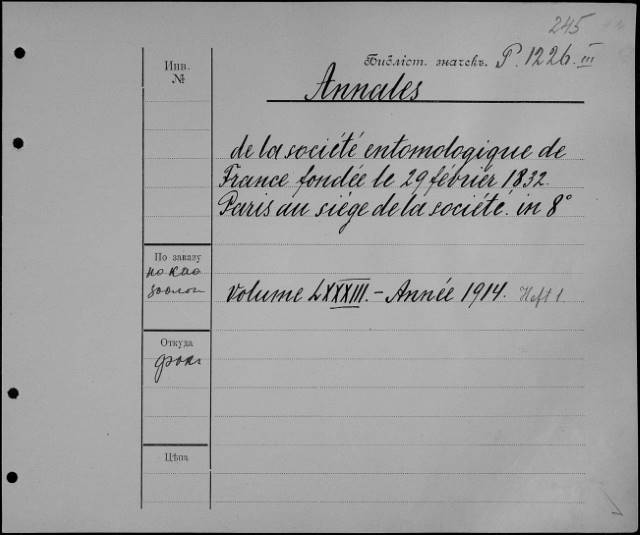 245
Инв. №
Библіот. значекъ. P. 1226. III
Annales
de la société entomologique de
France fondée le 29 février 1832.
Paris au siége de la société. in 8°
По заказу
Volume LXXXIII. – Année 1914. Heft 1.
Откуда
Цѣна